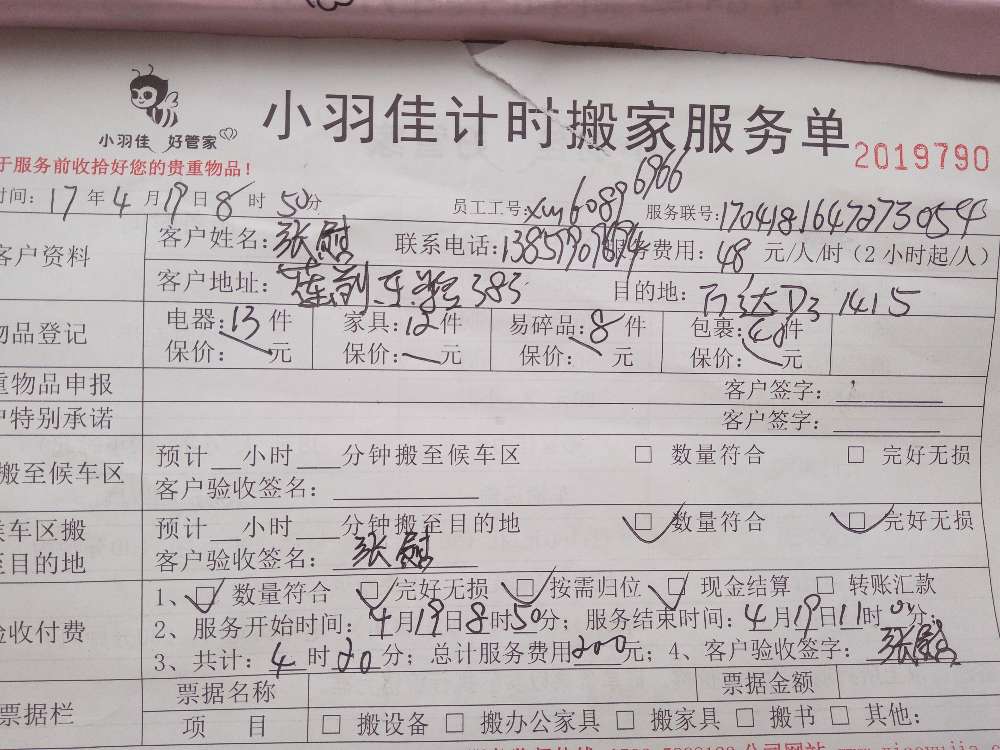 小羽佳 好管家
小羽佳计时搬家服务单
2019790
于服务前收拾好您的贵重物品！
时间：17年4月19日8时50分 员工工号： 6089 6966 服务联号：1704181647273054
客户资料 客户姓名：张慰 联系电话：138 服务费用：48元/人/时（2小时起/人）
客户地址：莲前东路383 目的地：万达D3 1415
物品登记 电器：13件 家具：12件 易碎品：8件 包裹：40件
保价： 元 保价： 元 保价： 元 保价： 元
重物品申报 客户签字：
户特别承诺 客户签字：
搬至候车区 预计 小时 分钟搬至候车区 □ 数量符合 □ 完好无损
客户验收签名：
候车区搬至目的地 预计 小时 分钟搬至目的地 ☑ 数量符合 ☑ 完好无损
客户验收签名：张慰
验收付费 1、☑ 数量符合 ☑ 完好无损 ☑ 按需归位 ☑ 现金结算 □ 转账汇款
2、服务开始时间：4月19日8时50分；服务结束时间：4月19日11时 分；
3、共计：4时20分；总计服务费用200元；4、客户验收签字：张慰
票据栏 票据名称 票据金额
项 目 □ 搬设备 □ 搬办公家具 □ 搬家具 □ 搬书 □ 其他：